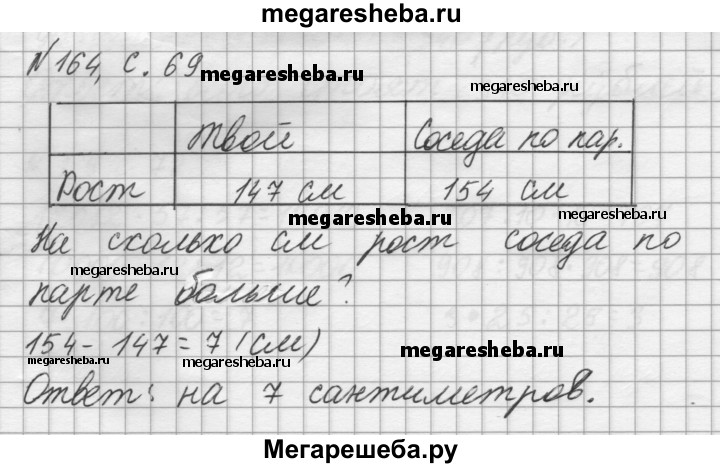 megaresheba.ru
№ 164, с. 69
megaresheba.ru
megaresheba.ru
Твой Соседа по пар.
Рост 147 см 154 см
megaresheba.ru
megaresheba.ru
На сколько см рост соседа по
megaresheba.ru
парте больше?
154 - 147 = 7 (см)
megaresheba.ru
megaresheba.ru
Ответ: на 7 сантиметров.
Мегарешеба.ру